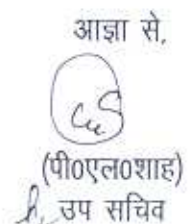 आज्ञा से,
(पी0एल0शाह)
उप सचिव